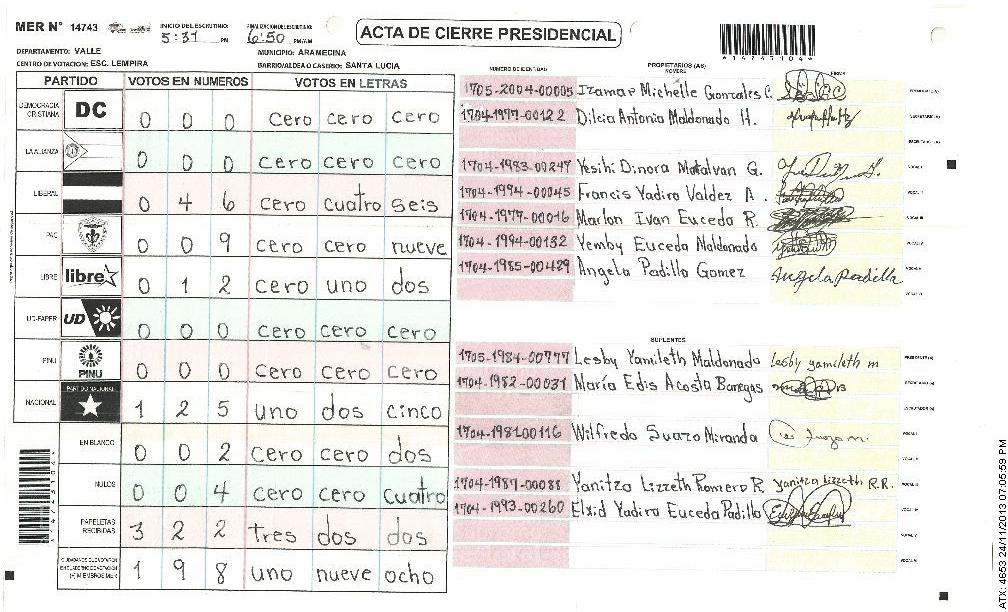 MER N° 14743 INICIO DEL ESCRUTINIO: 5:37 PM FINALIZACION DEL ESCRUTINIO: 6:50 PM/AM ACTA DE CIERRE PRESIDENCIAL
DEPARTAMENTO: VALLE MUNICIPIO: ARAMECINA
CENTRO DE VOTACION: ESC. LEMPIRA BARRIO/ALDEA O CASERIO: SANTA LUCIA
PARTIDO VOTOS EN NUMEROS VOTOS EN LETRAS
DEMOCRACIA CRISTIANA DC 0 0 0 cero cero cero
LA ALIANZA 0 0 0 cero cero cero
LIBERAL 0 4 6 cero cuatro seis
PAC 0 0 9 cero cero nueve
LIBRE libre 0 1 2 cero uno dos
UD-FAPER UD 0 0 0 cero cero cero
PINU PINU 0 0 0 cero cero cero
NACIONAL PARTIDO NACIONAL 1 2 5 uno dos cinco
EN BLANCO 0 0 2 cero cero dos
NULOS 0 0 4 cero cero cuatro
PAPELETAS RECIBIDAS 3 2 2 tres dos dos
(+) MIEMBROS MER 1 9 8 uno nueve ocho
NUMERO DE IDENTIDAD PROPIETARIOS (AS) NOMBRE FIRMA
1705-2004-00005 Izamar Michelle Gonzales C.
1704-1977-00122 Dilcia Antonia Maldonado H.
1704-1983-00247 Yesihi Dinora Matalvan G.
1704-1994-00045 Francis Yadira Valdez A.
1704-1977-00016 Marlon Ivan Euceda R.
1704-1994-00132 Yemby Euceda Maldonado
1704-1985-00429 Angela Padilla Gomez Angela Padilla
SUPLENTES
1705-1984-00777 Lesby Yamileth Maldonado Lesby yamileth m
1704-1982-00031 María Edis Acosta Banegas
1704-1981-00116 Wilfredo Suazo Miranda
1704-1987-00088 Yanitza Lizzeth Romero R. Yanitza Lizzeth R.R.
1704-1993-00260 Elxid Yadira Euceda Padilla
ATX: 4653 24/11/2013 07:05:59 PM